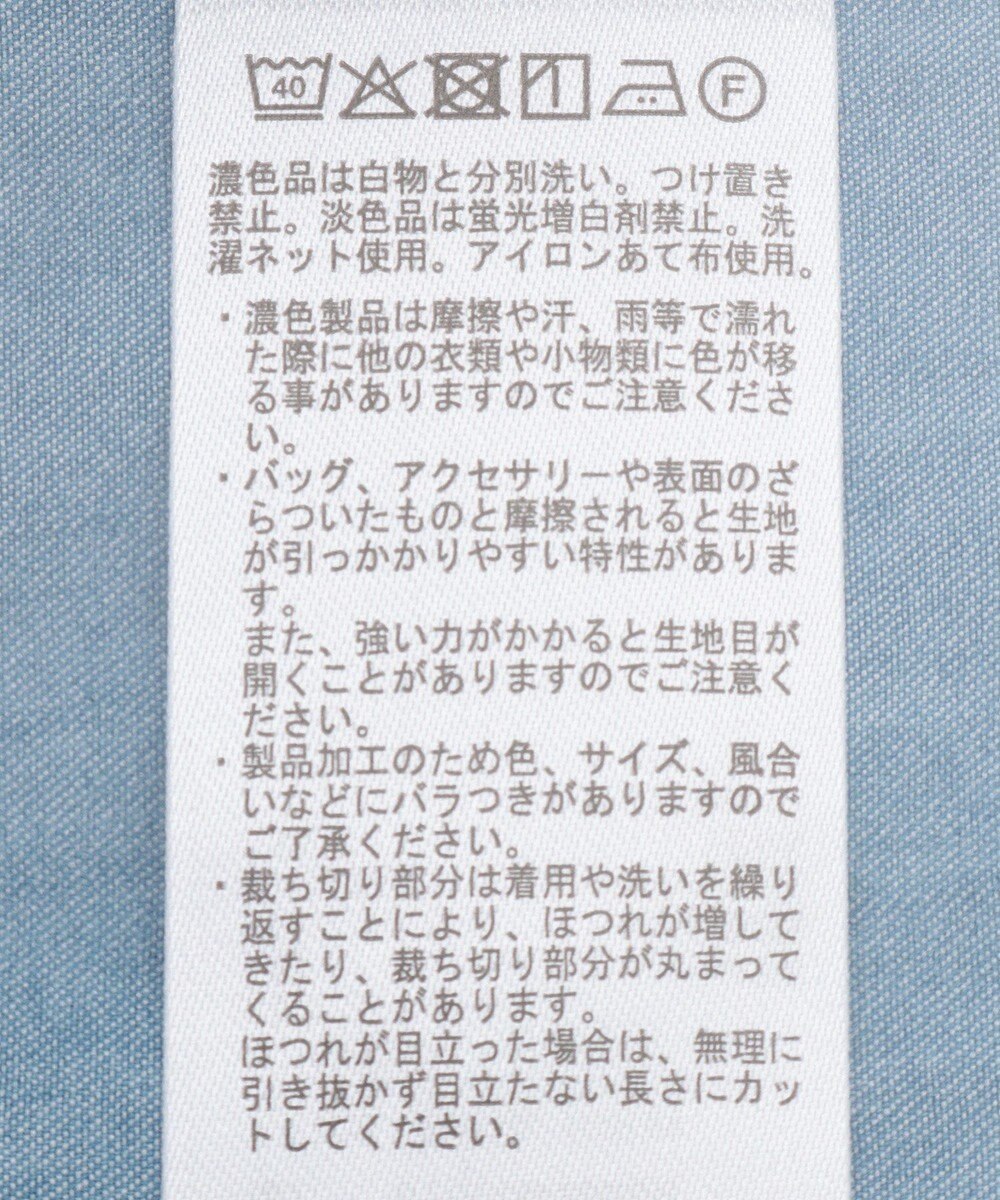 40 F
濃色品は白物と分別洗い。つけ置き
禁止。淡色品は蛍光増白剤禁止。洗
濯ネット使用。アイロンあて布使用。
・濃色製品は摩擦や汗、雨等で濡れ
た際に他の衣類や小物類に色が移
る事がありますのでご注意くださ
い。
・バッグ、アクセサリーや表面のざ
らついたものと摩擦されると生地
が引っかかりやすい特性がありま
す。
また、強い力がかかると生地目が
開くことがありますのでご注意く
ださい。
・製品加工のため色、サイズ、風合
いなどにバラつきがありますので
ご了承ください。
・裁ち切り部分は着用や洗いを繰り
返すことにより、ほつれが増して
きたり、裁ち切り部分が丸まって
くることがあります。
ほつれが目立った場合は、無理に
引き抜かず目立たない長さにカッ
トしてください。